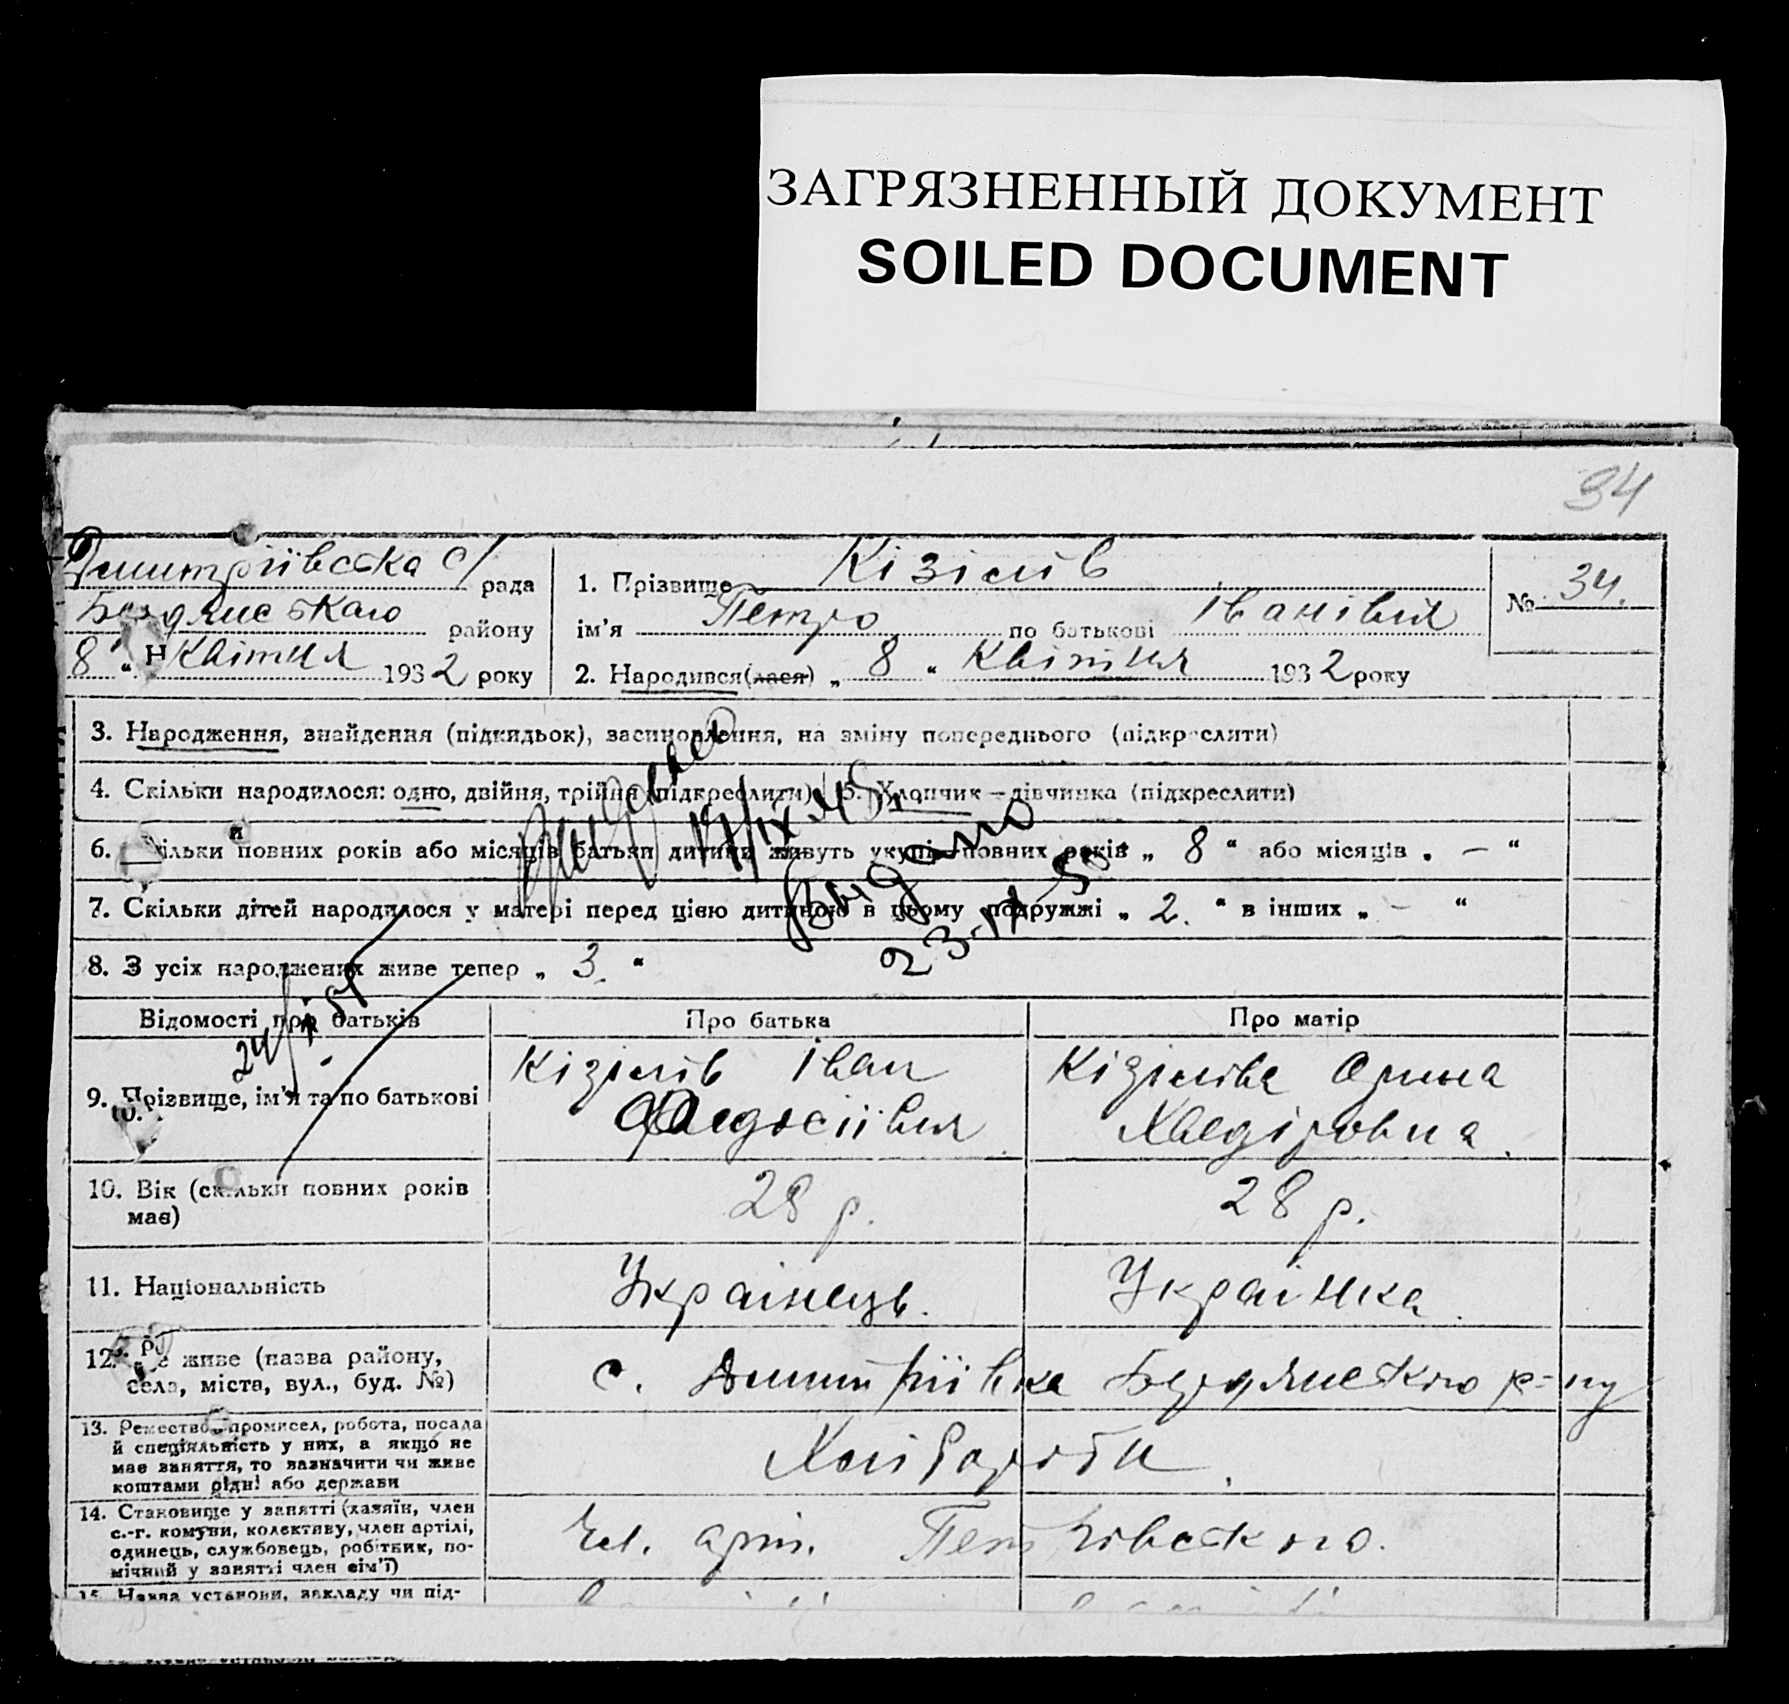 ЗАГРЯЗНЕННЫЙ ДОКУМЕНТ
SOILED DOCUMENT
34
Дмитріівська с/рада
Бердянського району
8 " Квітня 1932 року
1. Прізвище Кізілів
ім'я Петро по батькові Іванівич
2. Народився(лася) „ 8 " Квітня 1932 року
№ 34.
3. Народження, знайдення (підкидьок), засиновлення, на зміну попереднього (підкреслити)
4. Скільки народилося: одно, двійня, трійня (підкреслити) 5. Хлопчик—дівчинка (підкреслити)
6. Скільки повних років або місяців батьки дитини живуть укупі—повних років „ 8 " або місяців „ — "
7. Скільки дітей народилося у матері перед цією дитиною в цьому подружжі „ 2. " в інших „ — "
8. З усіх народжених живе тепер „ 3. "
19/IX 45
Выдано
24/IX 51
Відомості про батьків
Про батька
Про матір
9. Прізвище, ім'я та по батькові
Кізілів Іван
Федосіівич
Кізілива Орина
Хведіровна.
10. Вік (скільки повних років
має)
28 р.
28 р.
11. Національність
Українець.
Українка.
12. Де живе (назва району,
села, міста, вул., буд. №)
с. Дмитріівка Бердянського р-ну
13. Ремество, промисел, робота, посада
й спеціяльність у них, а якщо не
має заняття, то зазначити чи живе
коштами рідні або держави
Хліборуби.
14. Становище у занятті (хазяїн, член
с.-г. комуни, колективу, член артілі,
одинець, службовець, робітник, по-
мічний у занятті член сім'ї)
Чл. арт. Петровського.
15. Назва установи, закладу чи під-